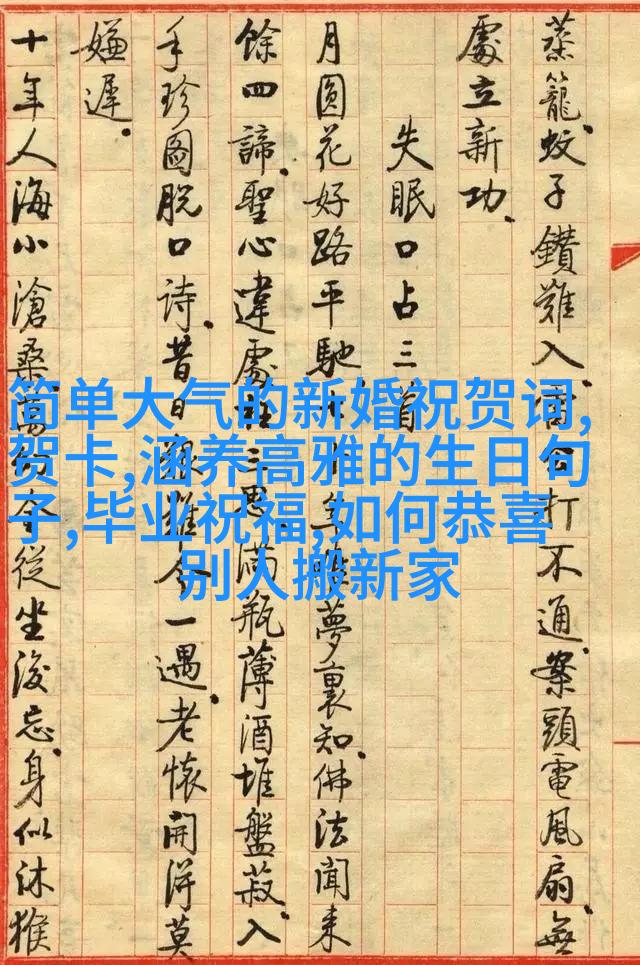 蒸籠蚊子鑽難入雷公打不通案頭電風扇無
處立新功
失眠口占三首
月圓花好路平馳夢裏知佛法聞來
餘四諦聖心違處三愚滿瓶薄酒堆盤菽入
手珍圖脫口詩昔日艱難今一遇老懷開得莫
嫌遲
十年人海小滄桑萬今從坐後忘身似沐猴
简单大气的新婚祝贺词,
贺卡,涵养高雅的生日句
子,毕业祝福,如何恭喜
别人搬新家